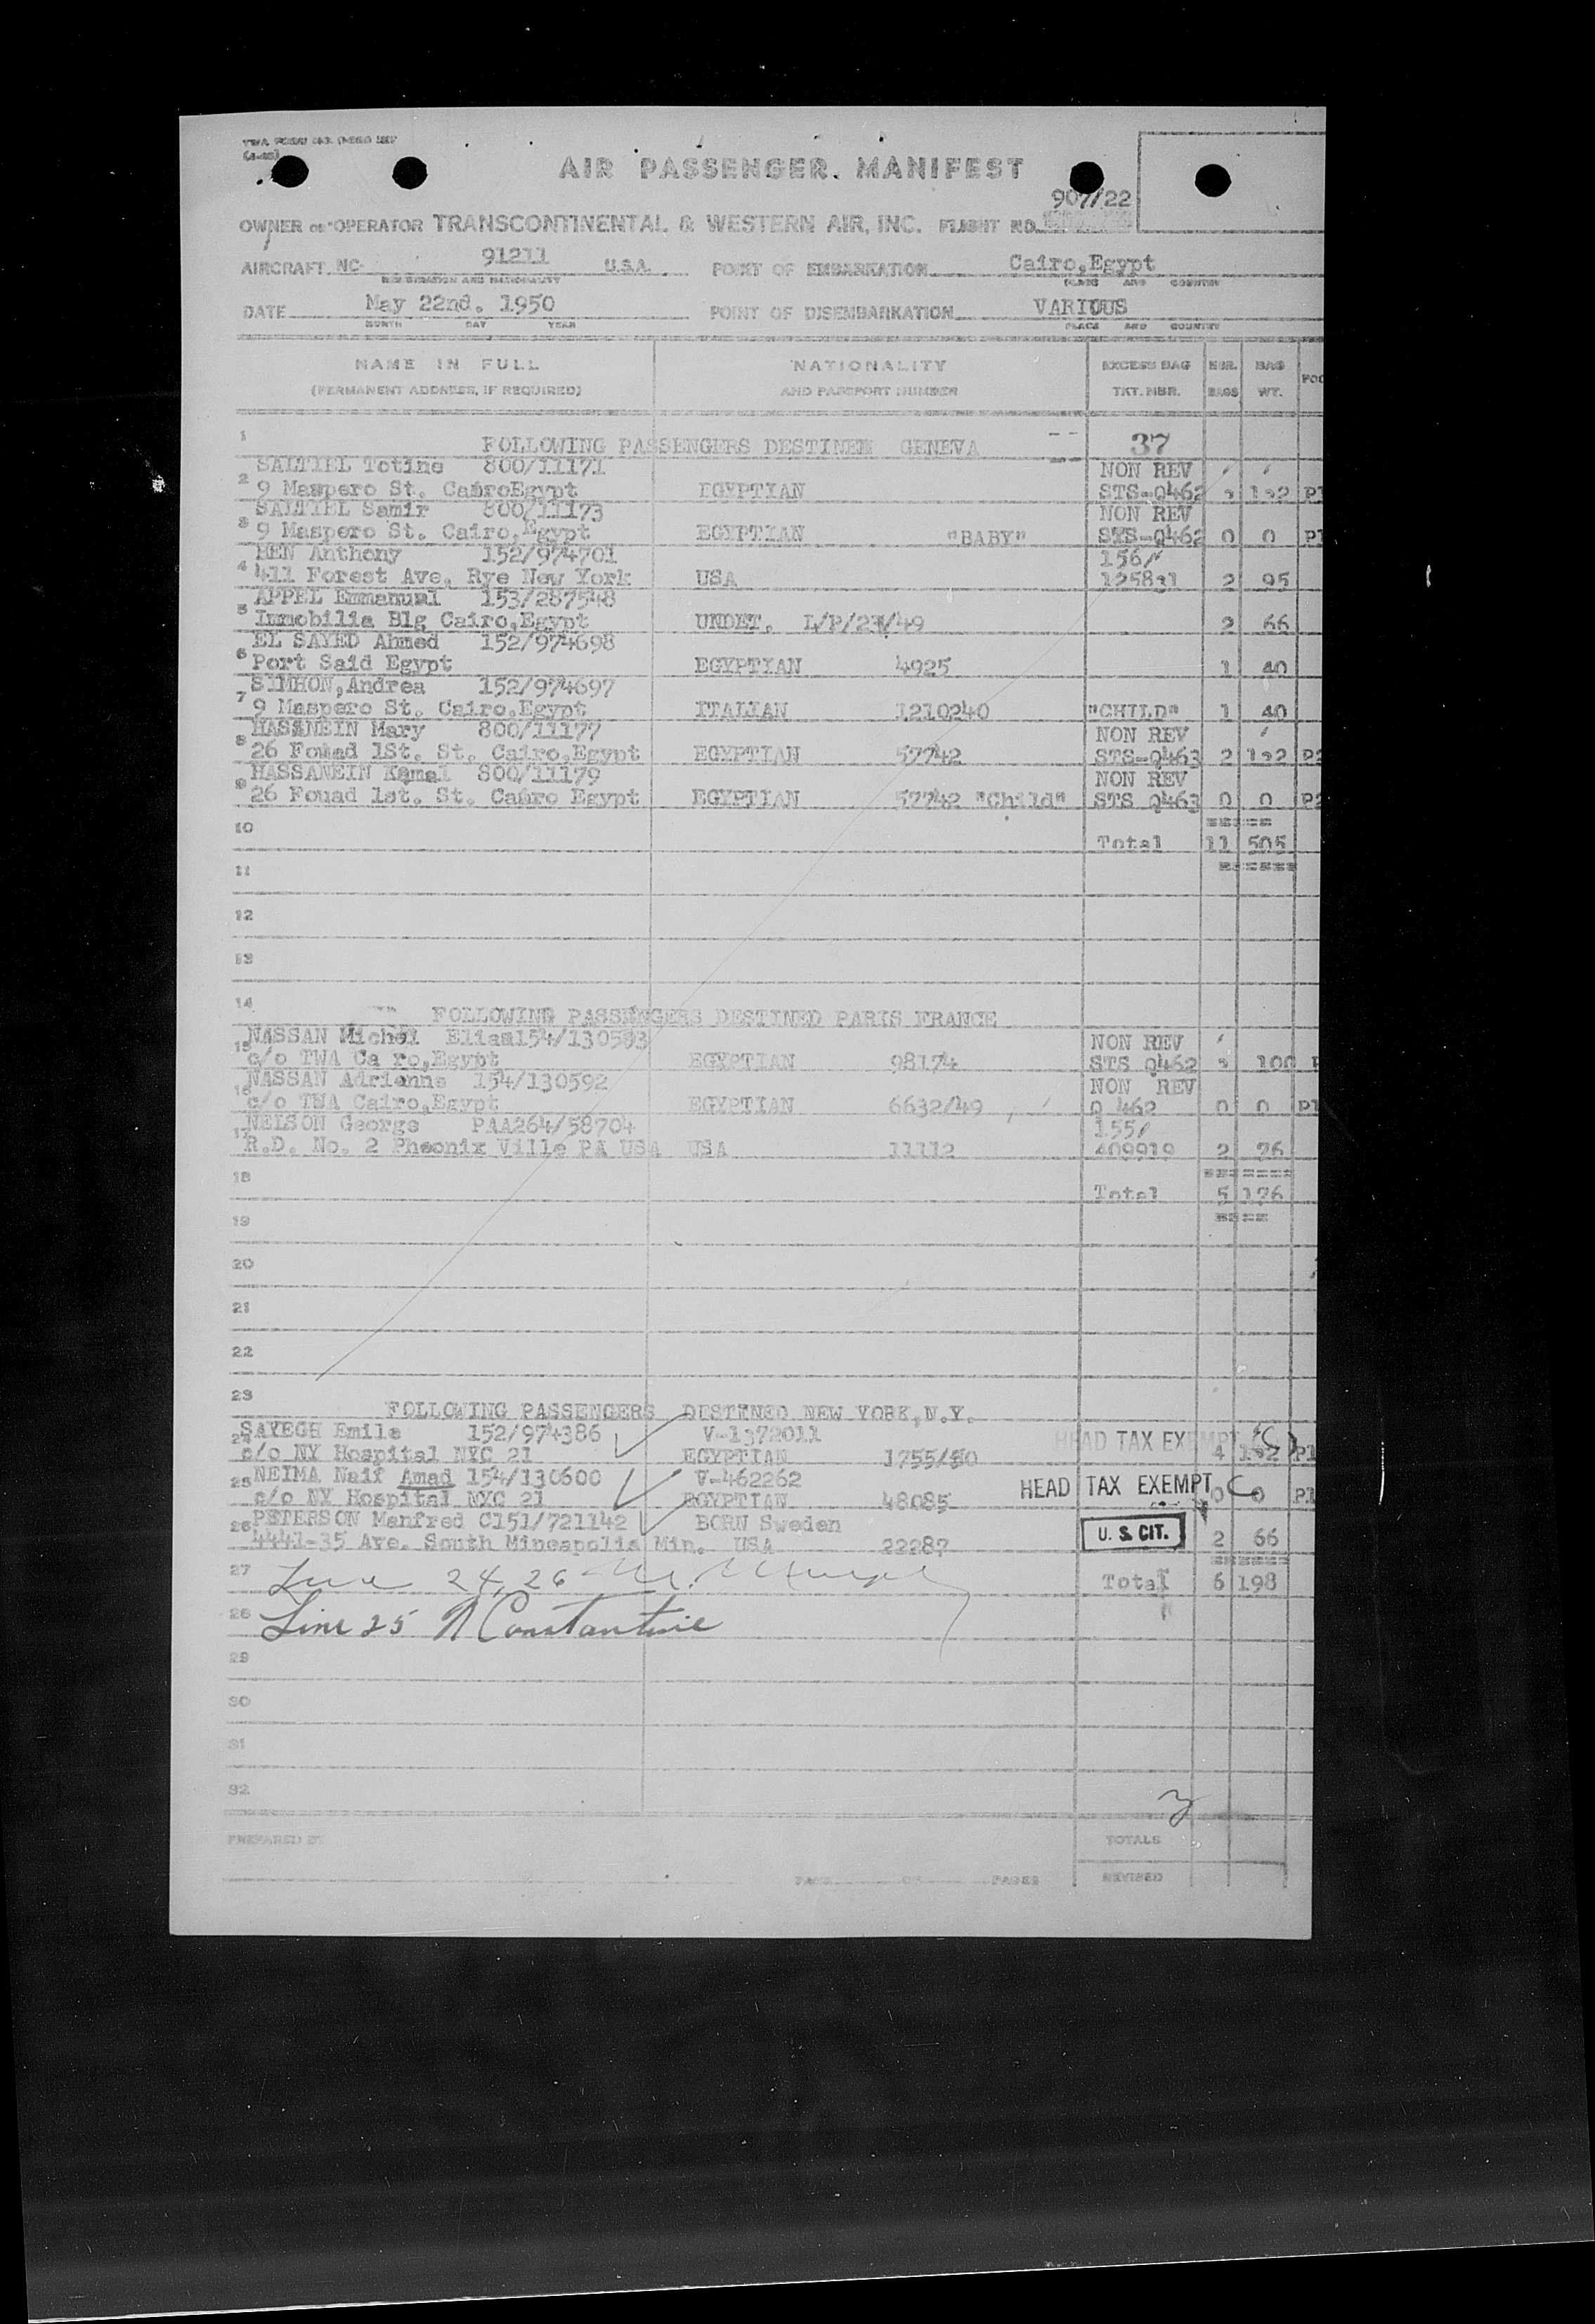 AIR PASSENGER MANIFEST
907/22
OWNER OR OPERATOR TRANSCONTINENTAL & WESTERN AIR, INC. FLIGHT NO.
AIRCRAFT NC- 91211 U.S.A. POINT OF EMBARKATION Cairo,Egypt
REGISTRATION AND NATIONALITY PLACE AND COUNTRY
DATE May 22nd. 1950 POINT OF DISEMBARKATION VARIOUS
MONTH DAY YEAR PLACE AND COUNTRY
NAME IN FULL NATIONALITY EXCESS BAG NBR. BAG
(PERMANENT ADDRESS, IF REQUIRED) AND PASSPORT NUMBER TKT. NBR. BAGS WT.
1 FOLLOWING PASSENGERS DESTINED GENEVA 37
SALTIEL Totine 800/11171 NON REV
2 9 Maspero St. CairoEgypt EGYPTIAN STS-Q462
SALTIEL Samir 800/11173 NON REV
3 9 Maspero St. Cairo,Egypt EGYPTIAN "BABY" STS-Q462 0 0
HEN Anthony 152/974701 156/
4 411 Forest Ave. Rye New York USA 125831 2 95
APPEL Emmanual 153/287548
5 Immobilia Blg Cairo,Egypt UNDET. L/P/23/49 2 66
EL SAYED Ahmed 152/974698
6 Port Said Egypt EGYPTIAN 4925 1 40
SIMHON,Andrea 152/974697
7 9 Maspero St. Cairo,Egypt ITALIAN 1210240 "CHILD" 1 40
HASANEIN Mary 800/11177 NON REV
8 26 Fouad 1St. St. Cairo,Egypt EGYPTIAN 57742 STS-Q463 2 132 P2
HASSANEIN Kamal 800/11179 NON REV
9 26 Fouad 1st. St. Cairo Egypt EGYPTIAN 57742 "Child" STS Q463 0 0 P2
10 Total 11 505
11
12
13
14 FOLLOWING PASSENGERS DESTINED PARIS FRANCE
NASSAN Michel Elias154/130593 NON REV
15 c/o TWA Ca ro,Egypt EGYPTIAN 98174 STS Q462 3 100
NASSAN Adrienne 154/130592 NON REV
16 c/o TWA Cairo,Egypt EGYPTIAN 6632/49 Q 462 0 0 P1
NELSON George PAA264/58704 155/
17 R.D. No. 2 Pheonix Ville PA USA USA 11112 409919 2 76
18 Total 5 176
19
20
21
22
23 FOLLOWING PASSENGERS DESTINED NEW YORK,N.Y.
SAYEGH Emile 152/974386 V-1372011 HEAD TAX EXEMPT
24 c/o NY Hospital NYC 21 EGYPTIAN 1755/50 4 132 P1
NEIMA Naif Amad 154/130600 V-462262 HEAD TAX EXEMPT C
25 c/o NY Hospital NYC 21 EGYPTIAN 48085 0 0 P1
26 PETERSON Manfred C151/721142 BORN Sweden U. S. CIT.
4441-35 Ave. South Mineapolis Min. USA 22287 2 66
27 Line 24, 26 Total 6 198
28 Line 25 N Constantine
29
30
31
32
PREPARED BY TOTALS
PAGE OF PAGES REVISED